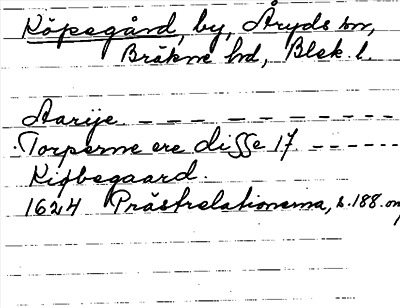 Köpegård, by, Åryds sn,
Bräkne hd, Blek. l.
Aarije – – – – – – – – – –
Torperne ere disse 17. – – – – – –
Kiøbegaard.
1624 Prästrelationerna, s. 188.